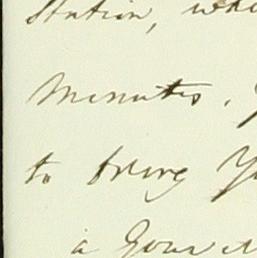 Station, whi
Minutes.
to bring Y
a Gover